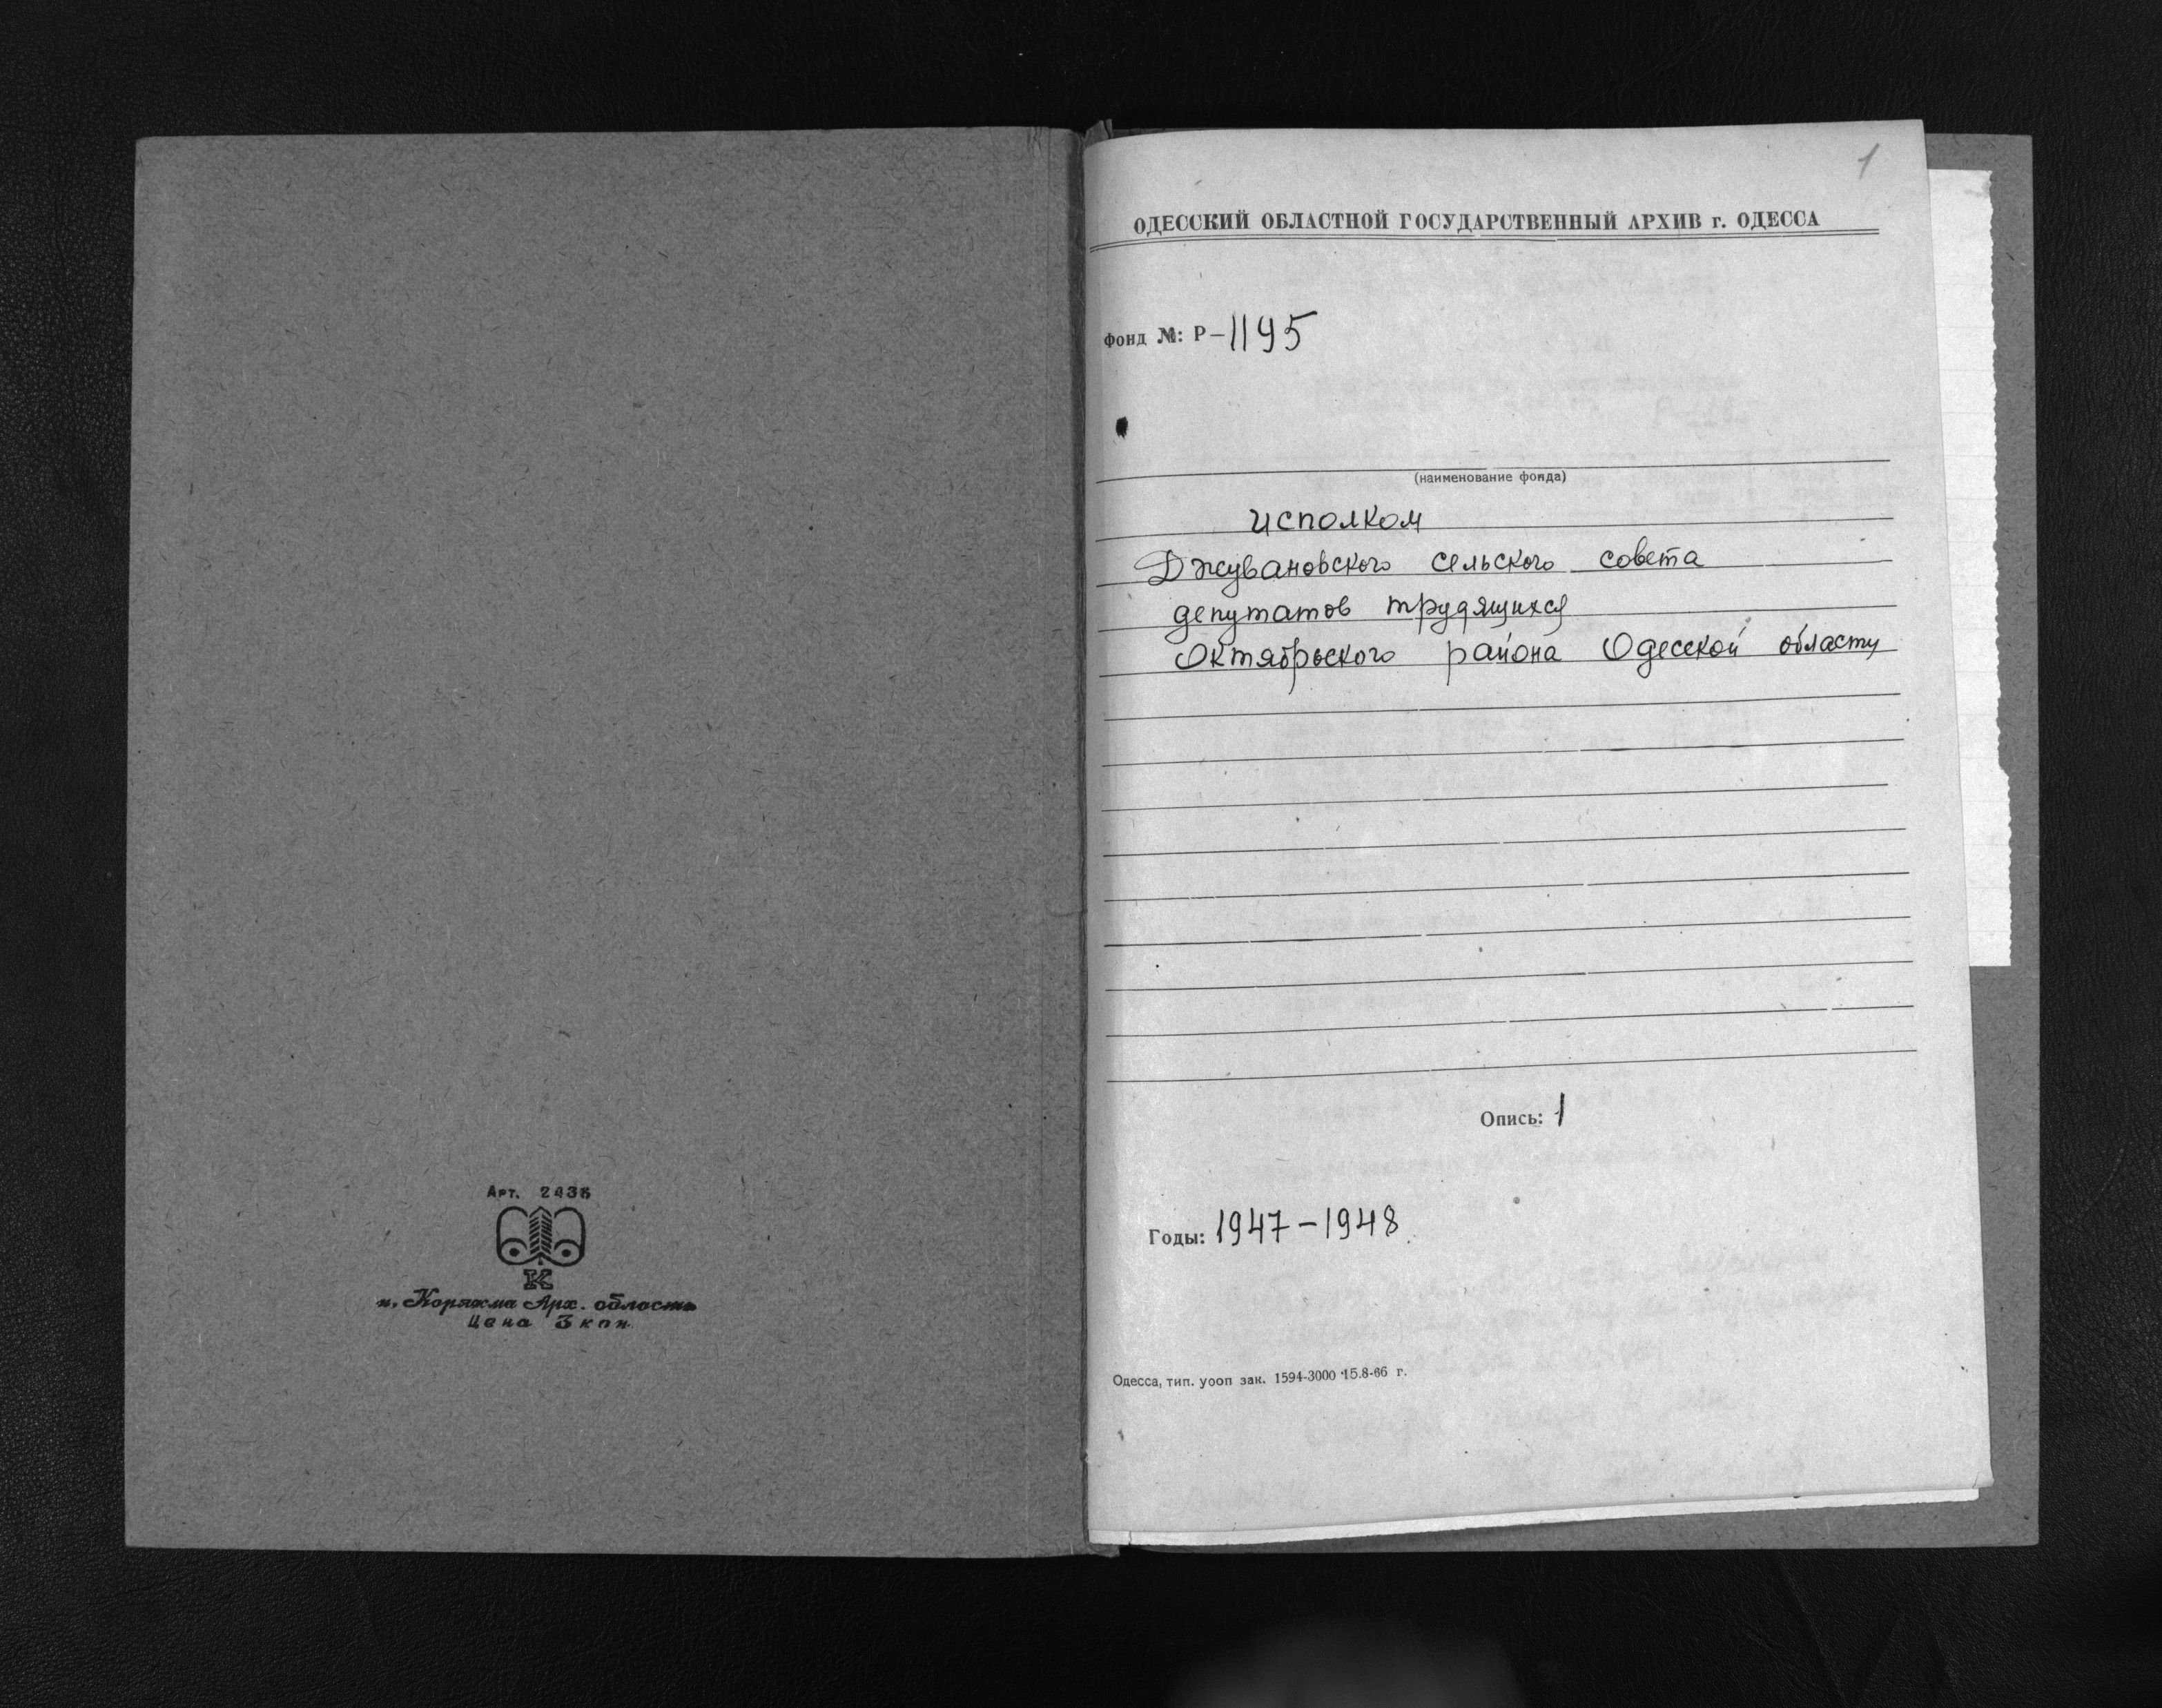 Арт. 2436
К
п. Коряжма Арх. область
Цена 3 коп.
1
ОДЕССКИЙ ОБЛАСТНОЙ ГОСУДАРСТВЕННЫЙ АРХИВ г. ОДЕССА
Фонд №: Р-1195
(наименование фонда)
Исполком
Джувановского сельского совета
депутатов трудящихся
Октябрьского района Одесской области
Опись: 1
Годы: 1947-1948
Одесса, тип. уооп зак. 1594-3000 15.8-66 г.